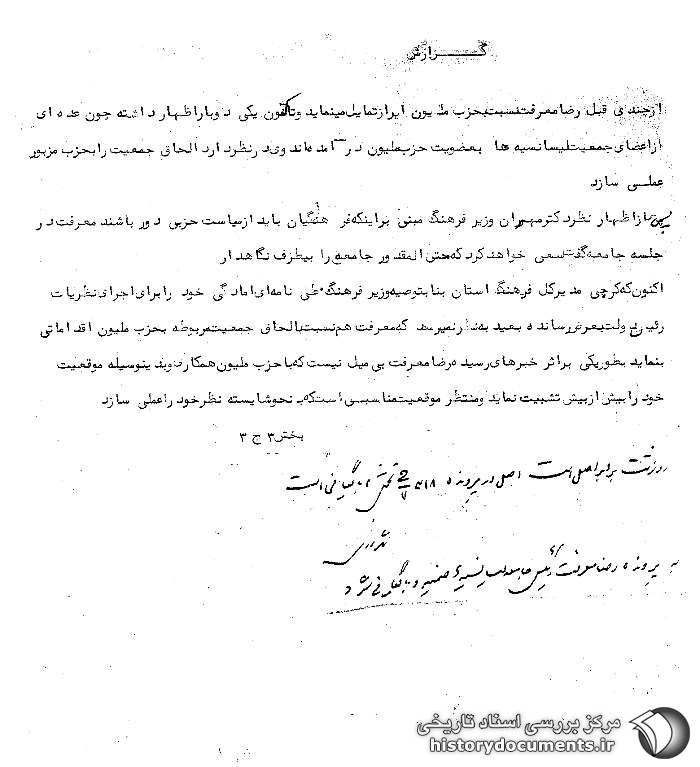 گــــزارش
ازچندی قبل رضامعرفت نسبت بحزب ملیون ابرازتمایل مینماید وتاکنون یکی دوباراظهار داشته چون عده ای
ازاعضای جمعیت لیسانسیه ها بعضویت حزب ملیون درآمده اند وی درنظردارد الحاق جمعیت رابحزب مزبور
عملی سازد
پس ازاظهار نظردکترمهران وزیر فرهنگ مبنی براینکه فرهنگیان باید ازسیاست حزبی دور باشند معرفت در
جلسه جامعه گفت سعی خواهدکرد که حتی المقدور جامعه را بیطرف نگاهدار
اکنون که کرچی مدیرکل فرهنگ استان بنابتوصیه وزیر فرهنگ طی نامه ای امادگی خود رابرای اجرای نظریات
رئیس دولت بعرض رسانده بعید بنظرنمیرسد که معرفت هم نسبت بالحاق جمعیت مربوطه بحزب ملیون اقداماتی
بنماید بطوریکه براثر خبرهای رسیده رضامعرفت بی میل نیست که باحزب ملیون همکاری وبدینوسیله موقعیت
خود رابیش ازپیش تثبیت نماید ومنتظر موقعیت مناسبی است که بنحوشایسته نظرخود راعملی سازد
بخش ۳ ج ۳
رونوشت برابر اصل است اصل در پرونده ۳۱۸ بایگانی است
به پرونده رضا معرفت رئیس جامعه لیسانسیه ضمیمه و بایگانی شود
مرکز بررسی اسناد تاریخی
historydocuments.ir